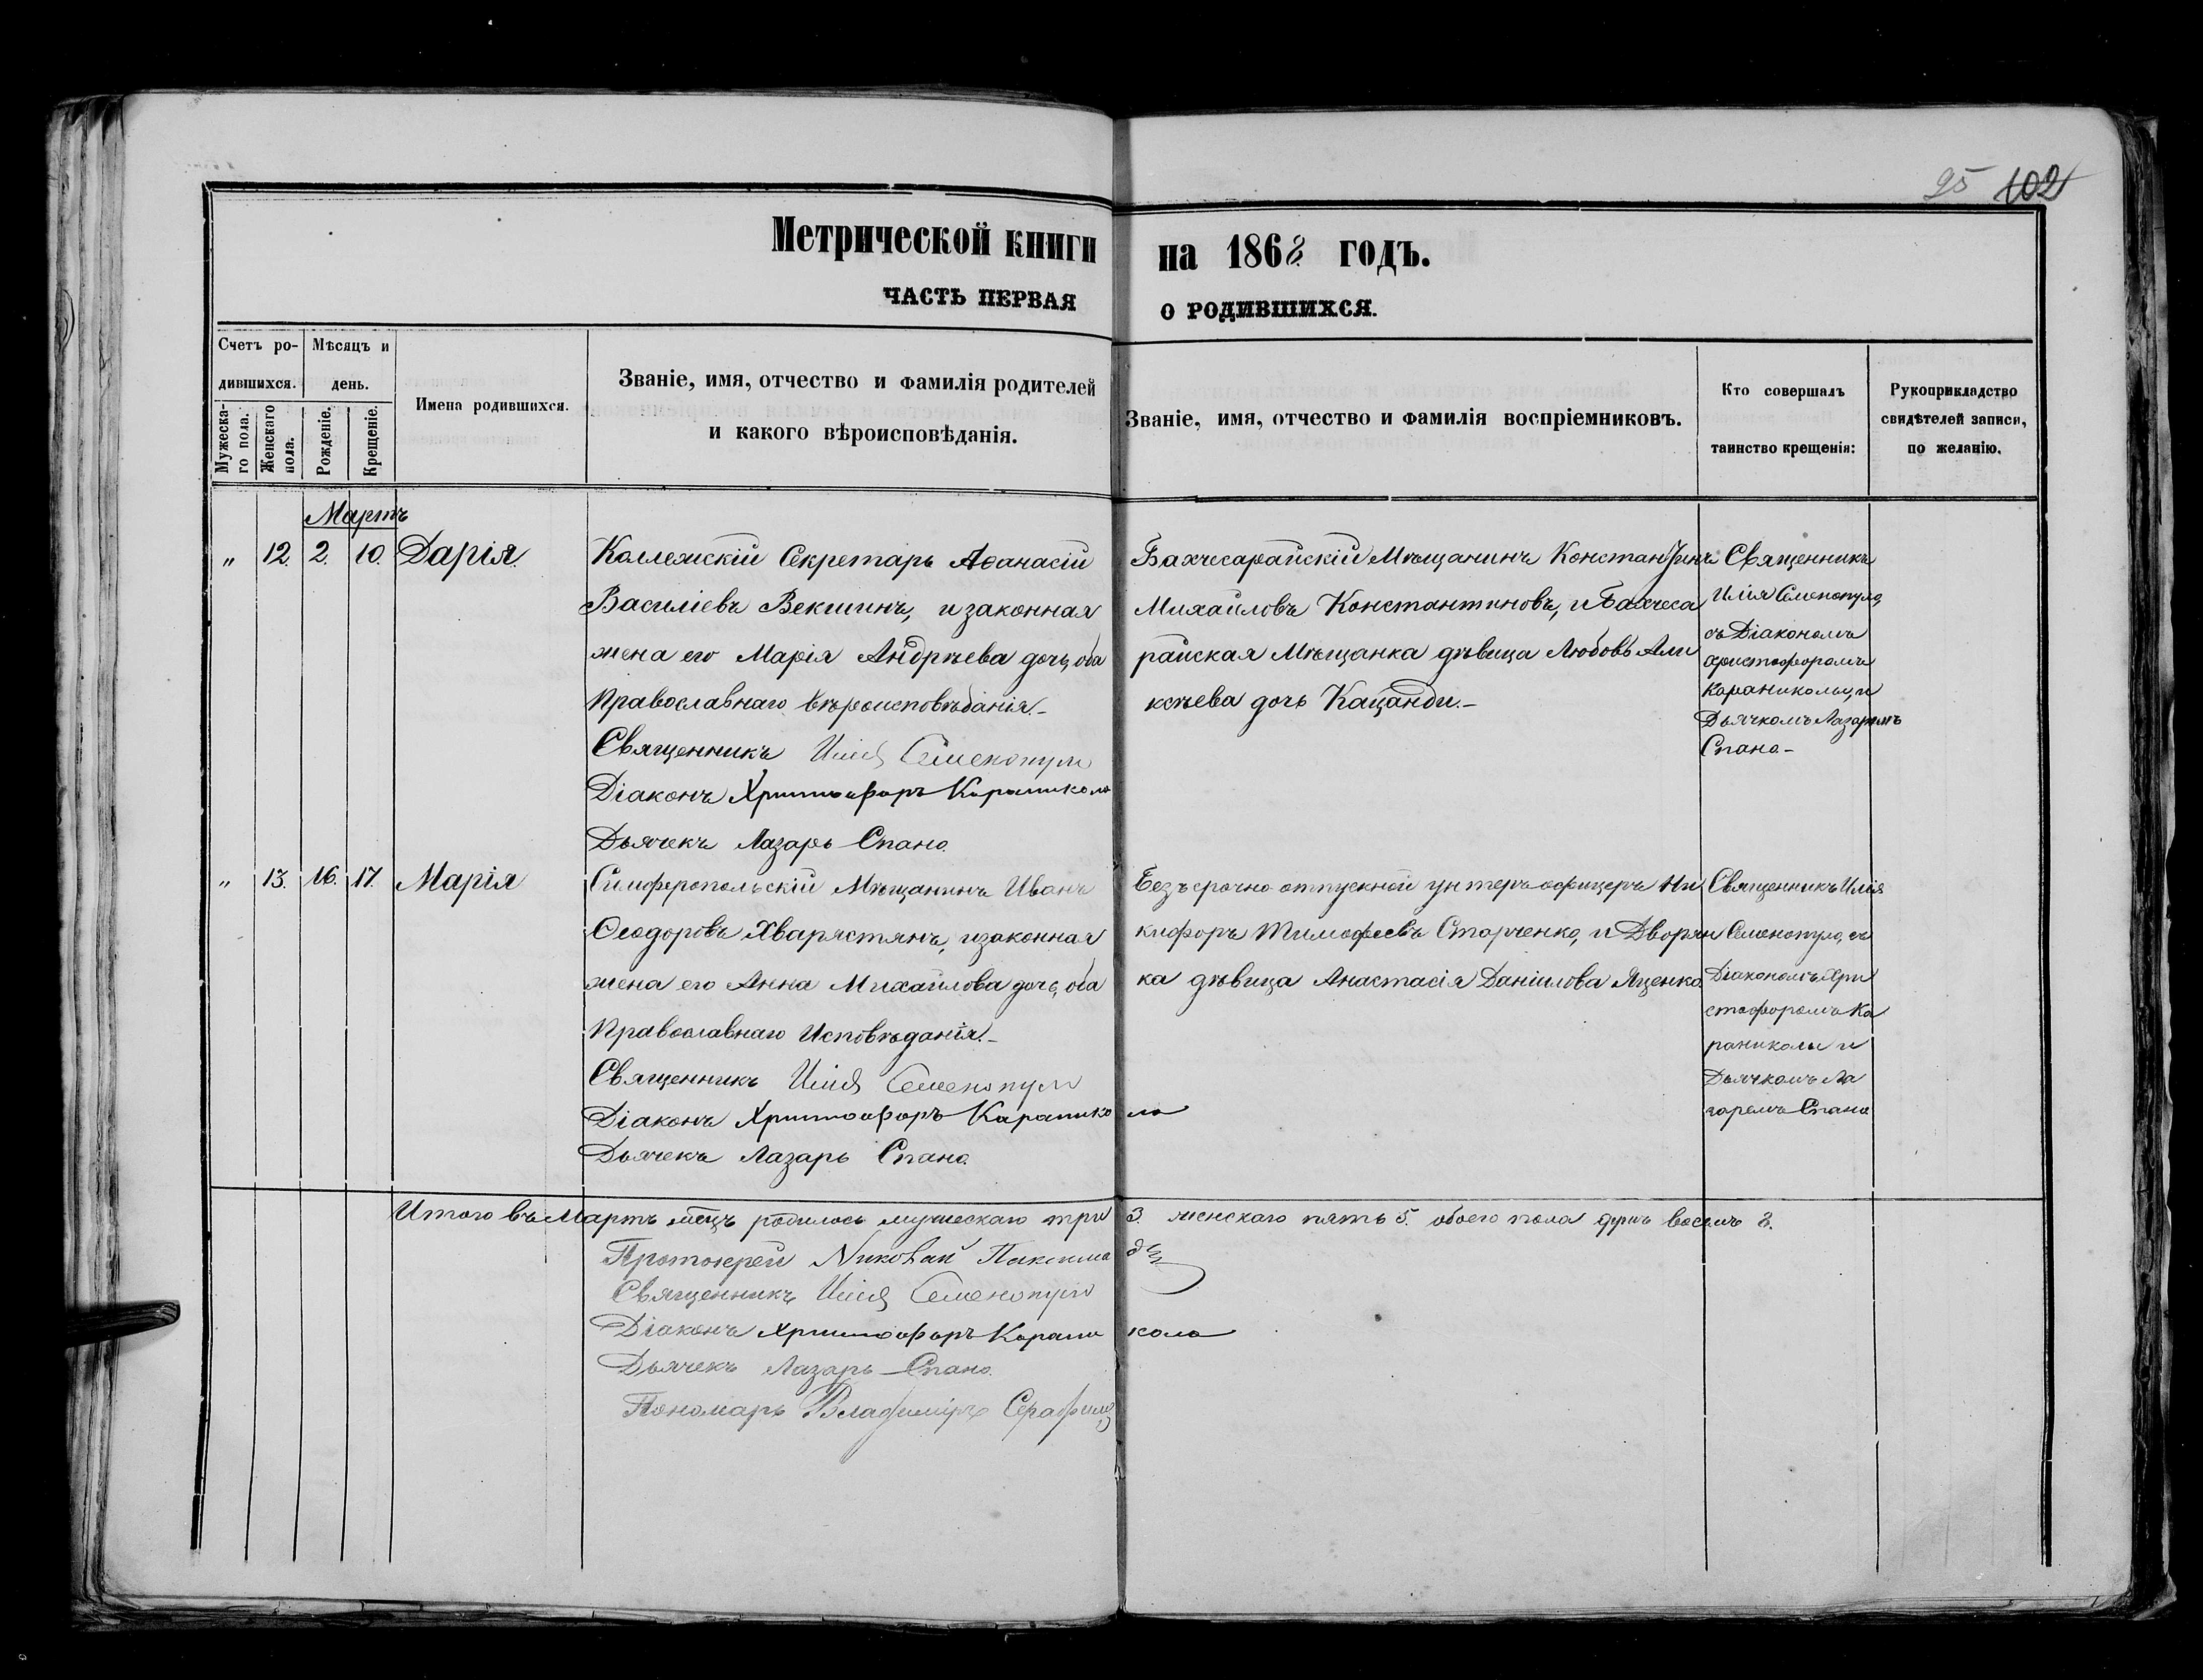 25 102
Метрической книги на 1868 годъ.
ЧАСТЬ ПЕРВАЯ О РОДИВШИХСЯ.
Счетъ ро-
дившихся.
Мужеска-
го пола.
Женскаго
пола.
Мѣсяцъ и
день.
Рожденіе.
Крещеніе.
Имена родившихся.
Званіе, имя, отчество и фамилія родителей
и какого вѣроисповѣданія.
Званіе, имя, отчество и фамилія воспріемниковъ.
Кто совершалъ
таинство крещенія:
Рукоприкладство
свидѣтелей записи,
по желанію.
Мартъ
" 12. 2. 10. Дарія.
Коллежскій Секретарь Аѳанасій
Василіевъ Векшинъ, и законная
жена его Марія Андрѣева дочь, оба
Православнаго вѣроисповѣданія.-
Священникъ Илія Семенопуло
Діаконъ Христофоръ Караникола
Дьячекъ Лазарь Спано.
Бахчесарайскій Мѣщанинъ Константинъ
Михайловъ Константиновъ, и Бахчеса
райская Мѣщанка дѣвица Любовь Али
ксѣева дочь Кацанди.-
Священникъ
Илія Семенопуло,
съ Діакономъ
Христофоромъ
Караниколы, и
Дьячкомъ Лазаремъ
Спано-
" 13. 16. 17. Марія
Симферопольскій Мѣщанинъ Иванъ
Ѳеодоровъ Хварястянъ, и законная
жена его Анна Михайлова дочь, оба
Православнаго Исповѣданія.-
Священникъ Илія Семенопуло
Діаконъ Христофоръ Караникола
Дьячекъ Лазарь Спано.
Безъ срочно отпускной унтеръ-офицеръ Ни
кифоръ Тимофеевъ Старченко, и Дворян
ка дѣвица Анастасія Даніилова Яценко.
Священникъ Илія
Семенопуло, съ
Діакономъ Хри
стофоромъ Ка
раниколы и
Дьячкомъ Ла
заремъ Спано
Итого въ Мартѣ мѣсцѣ родилось мужескаго три 3. женскаго пять 5. обоего пола душъ восемь 8.
Протоіерей Николай
Священникъ Илія Семенопуло
Діаконъ Христофоръ Караникола
Дьячекъ Лазарь Спано.
Пономарь Владиміръ